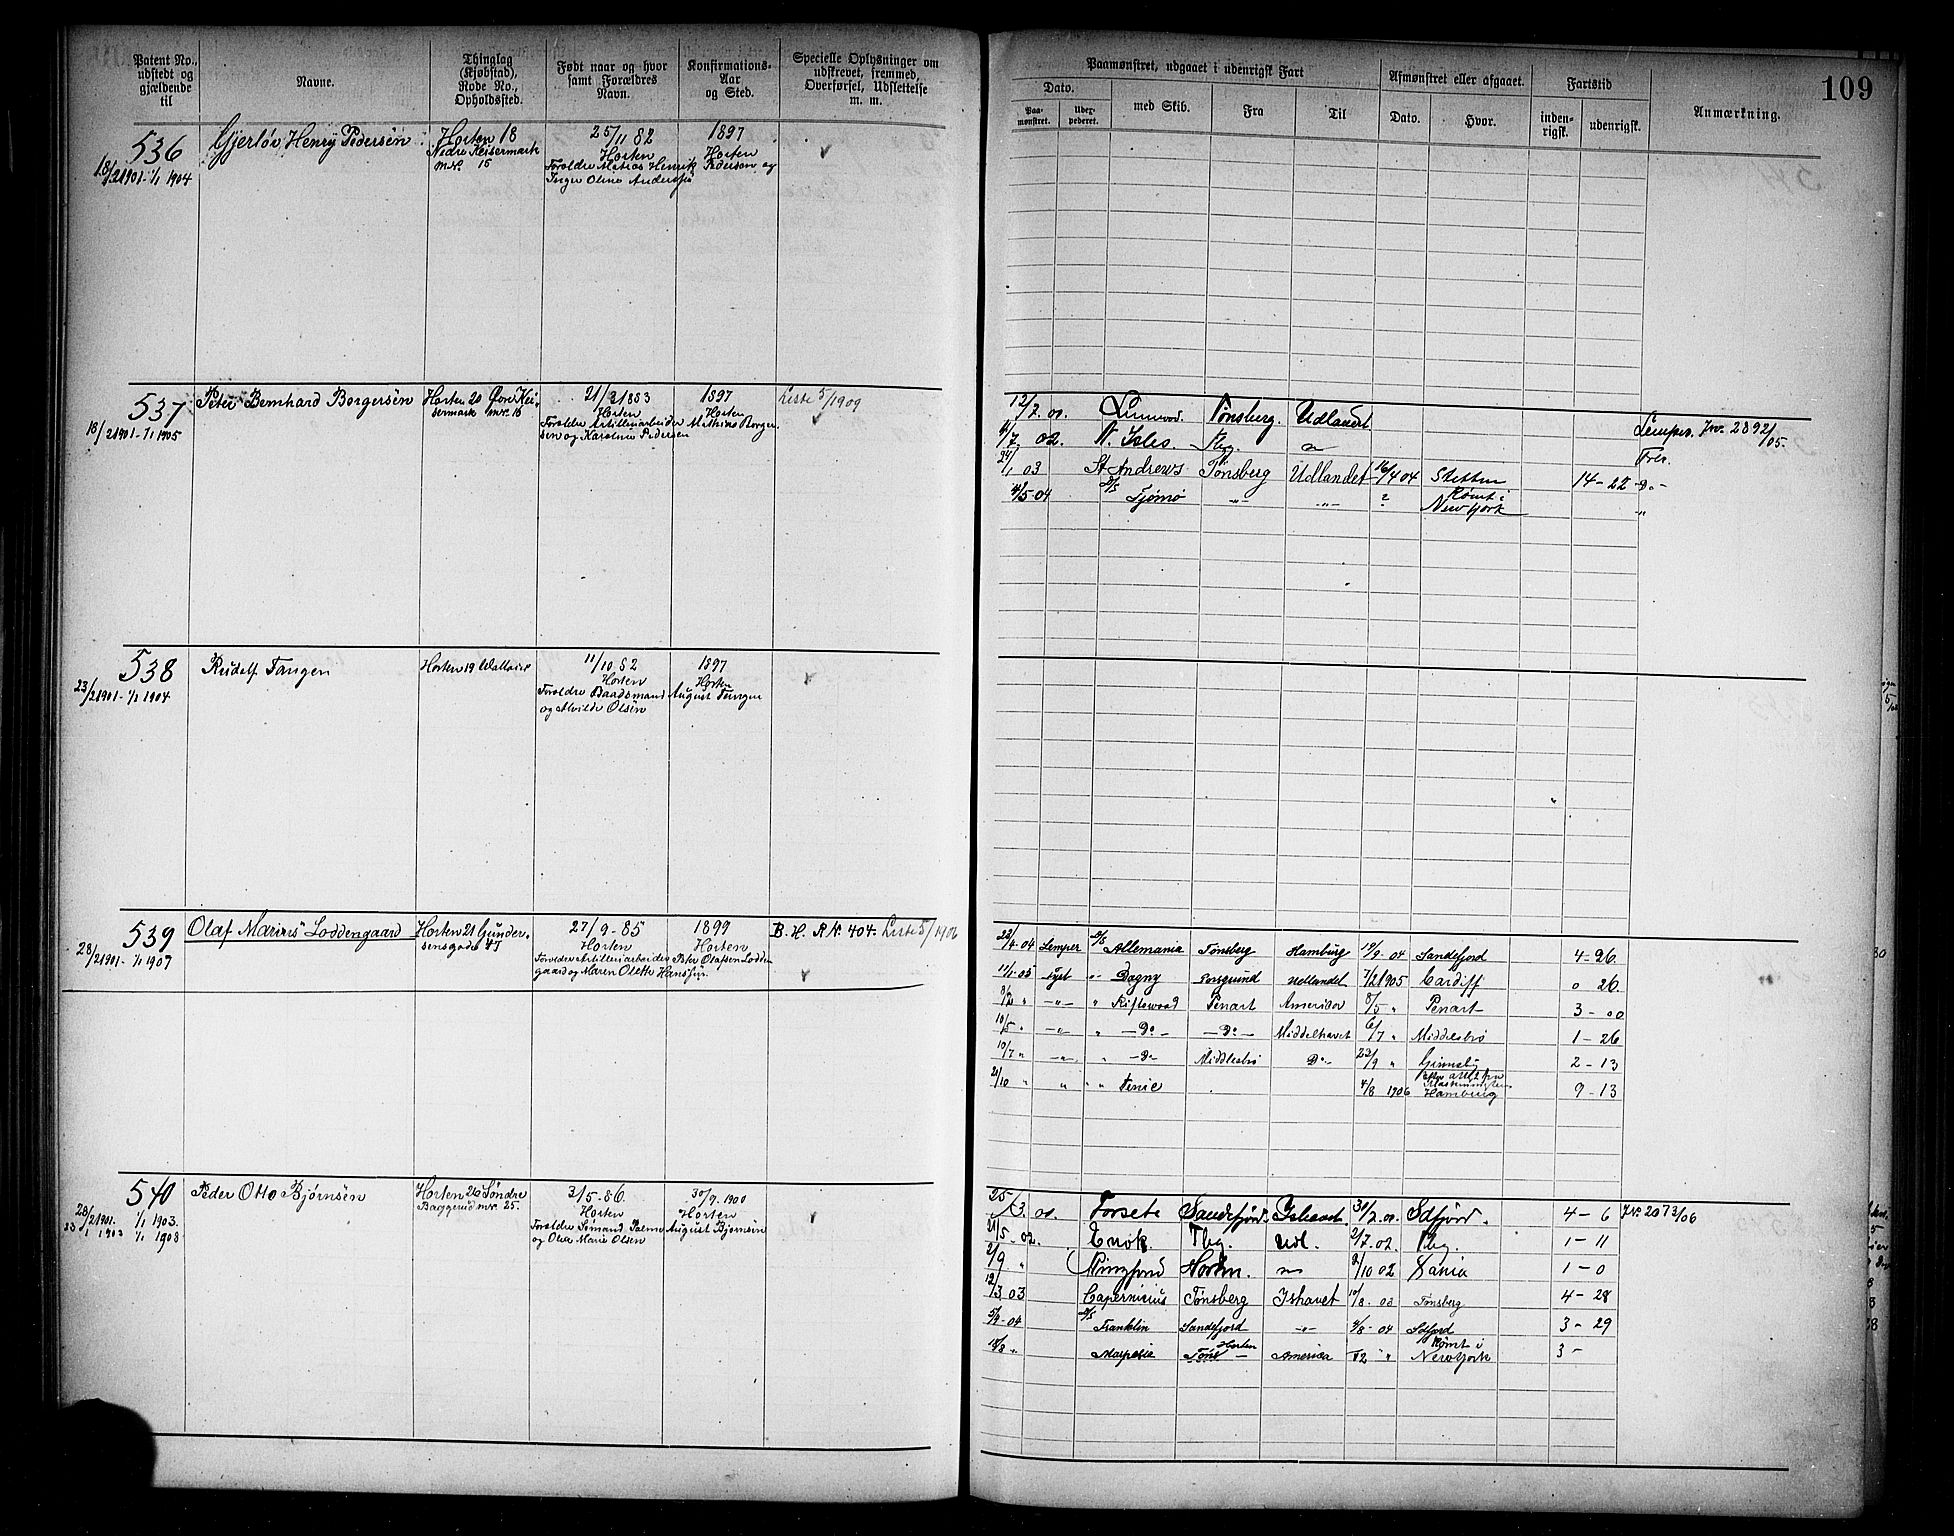 Patent No., udstedt og gjældende til
Navne.
Thinglag (Kjøbstad), Rode No., Opholdssted.
Født naar og hvor samt Forældres Navn.
Konfirmations-Aar og Sted.
Specielle Oplysninger om udskrevet, fremmed, Overførsel, Udslettelse m. m.
Paamønstret, udgaaet i udenrigsk Fart
Afmønstret eller afgaaet.
Fartstid
Anmærkning.
109
Dato.
Paa-mønstret.
med Skib.
Fra
Til
Dato.
Hvor.
inden-rigsk.
udenrigsk.
536
18/2 1901 - 1/1 1904
Gjerløv Henry Pedersen
Horten 18
Nedre Keisermark
mr. 15
25/11 82
Horten
Forældre Matias Henrik Pedersen og
Inger Oline Andersen
1897
Horten
537
18/2 1901 - 1/1 1905
Peter Bernhard Borgersen
Horten 20 Øvre Kei-
sermark mr. 16
21/3 1883
Horten
Forældre Artilleriarbeider Mathias Borger-
sen og Karoline Pedersen
1897
Horten
Liste 5/1909
12/7. 01. Tønsberg. Udlandet
/7 02. N. Isles. Tbg. Jnr. 2892/05.
24/1 03 St Andrews Tønsberg Udlandet 16/4 04 Stettin 14 - 22 -Do-
4/5 - 04 D/S Tjømø -"- -"- ? Rømt i
New York "
538
23/2 1901 - 1/1 1904
Rudolf Tangen
Horten 19
11/10 82
Horten
Forældre Baadsmand August Tangen
og Alvilde Olsen
1897
Horten
539
28/2 1901 - 1/1 1907
Olaf Marius Loddengaard
Horten 21 Gunder-
sensgade 47
27/9 - 85
Horten
Forældre Artilleriarbeider Peter Olafsen Lodden
gaard og Maren Olette Hanssen
1899
Horten
B. H. R Nr. 404. Liste 5/1906
22/4 - 04 Lemper D/S Allemania Tønsberg Hamburg 19/9 - 04 Sandefjord 4 - 26
11/1 - 05 " Dagny Porsgrund Udlandet 7/2 1905 Cardiff 0 26.
8/2 " -"- " Penart Amerika 8/5 " Penart 3 - 00
10/5 " -"- " -Do- -Do- Middelhavet 6/7 " Middelsbrø 1 - 26
10/7 " -"- " -Do- Middlesbrø Do- 22/9 " Grimsby 2 - 13
21/10 " " " " 4/8 1906
Hamburg 9 - 13
540
28/2 1901.
1/1 1903.
1/1 1908
Peder Otto Bjørnsen
Horten 26 Søndre
Baggerud mr. 25.
3/5 - 86.
Horten
August Bjørnsen
og Olea Marie Olsen
30/9. 1900
Horten
25/3. 01. Forsete Sandefjord. Ishavet 31/7. 01. Sdfjørd. 4 - 6 JNr. 2073/06
21/5 - 02. Enok. Tbg. Udl. 2/7. 02. Tbg. 1 - 11
2/9 " Ringfond Horten. 2/10 02 1 - 0
12/3 03 Capernicius Tønsberg Ishavet 10/8. 03 Tønsberg 4 - 28
5/4 - 04 D/S Franklin Sandefjord -"- 4/8 - 04 Sdfjord 3 - 29
18/8 " Marpesia Horten Amerika 12 " Rømt i
New York 3 -